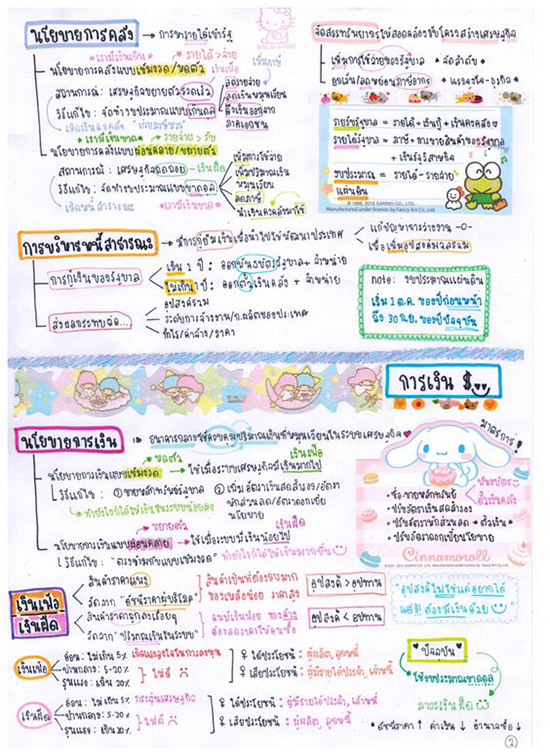 นโยบายการคลัง → การหารายได้เข้ารัฐ
จัดสรรทรัพยากรให้สอดคล้องกับโครงสร้างเศรษฐกิจ
เรามีเงินเกิน รายได้ > จ่าย
นโยบายการคลังแบบเข้มงวด/หดตัว เงินเฟ้อ
สถานการณ์ : เศรษฐกิจขยายตัวรวดเร็ว
วิธีแก้ไข : จัดทำงบประมาณแบบเกินดุล
ลดรายจ่าย
ลดปริมาณเงินหมุนเวียน
ภาคเอกชน
เรามีเงินขาด รายจ่าย > รับ
นโยบายการคลังแบบผ่อนคลาย/ขยายตัว
สถานการณ์ : เศรษฐกิจถดถอย - เงินฝืด
วิธีแก้ไข : จัดทำงบประมาณแบบขาดดุล
เกิดหนี้สาธารณะ เรามีเงินขาด
เพิ่มการใช้จ่าย
เพิ่มปริมาณเงินหมุนเวียน
ลดภาษี
นำเงินคงคลังมาใช้
เพิ่มการใช้จ่ายของรัฐบาล
รายรับรัฐบาล = รายได้ + เงินกู้ + เงินคงคลัง
รายได้รัฐบาล = ภาษี + การขายสินค้าของรัฐบาล
+ เงินรัฐวิสาหกิจ
งบประมาณแผ่นดิน = รายได้ - รายจ่าย
Manufactured under license by Fancy Art Co., Ltd.
การบริหารหนี้สาธารณะ → มีการกู้ยืมเงินเพื่อนำไปใช้พัฒนาประเทศ
แก้ปัญหาการว่างงาน
เพื่อเพิ่มอุปสงค์มวลรวม
การกู้เงินของรัฐบาล
เกิน 1 ปี : ออกพันธบัตรรัฐบาล + จำหน่าย
ไม่เกิน 1 ปี : ออกตั๋วเงินคลัง + จำหน่าย
ส่งผลกระทบต่อ...
อุปสงค์รวม
ระดับการจ้างงาน/ก.ผลิตของประเทศ
กำไร/ค่าจ้าง/ราคา
note : งบประมาณแผ่นดิน
เริ่ม 1 ต.ค. ของปีก่อนหน้า
ถึง 30 ก.ย. ของปีปัจจุบัน
การเงิน $
นโยบายการเงิน → ธนาคารกลางใช้ควบคุมปริมาณเงินที่หมุนเวียนในระบบเศรษฐกิจ
มาตรการ!
หดตัว เงินเฟ้อ
นโยบายการเงินแบบเข้มงวด → ใช้เมื่อระบบเศรษฐกิจมีเงินมากไป
วิธีแก้ไข : ① ขายหลักทรัพย์รัฐบาล ② เพิ่มอัตราเงินสดสำรอง/อัตรา
พักส่วนลด/อัตราดอกเบี้ย
นโยบาย
ทำยังไงก็ได้ให้เงินในระบบน้อยลง
ขยายตัว เงินฝืด
นโยบายการเงินแบบผ่อนคลาย → ใช้เมื่อระบบมีเงินน้อยไป
วิธีแก้ไข : "ตรงข้ามกับแบบเข้มงวด" ทำยังไงก็ได้ให้เงินมากขึ้น
• ซื้อ-ขายหลักทรัพย์
• ปรับอัตราเงินสดสำรอง
พันธบัตร
ตั๋วเงินคลัง
• ปรับอัตราดอกเบี้ยนโยบาย
Cinnamoroll
เงินเฟ้อ
เงินฝืด
สินค้าราคาแพง
วัดจาก "ดัชนีราคาผู้บริโภค"
สินค้าราคาถูกลงเรื่อยๆ
วัดจาก "ปริมาณเงินในระบบ"
สินค้าเป็นที่ต้องการมาก
ของเหลือน้อย ราคาสูง
อุปสงค์ > อุปทาน
อุปสงค์ < อุปทาน
อุปสงค์ไม่ใช่แค่อยากได้
แต่!! ต้องมีเงินด้วย
เงินเฟ้อ
อ่อน : ไม่เกิน 5%
ปานกลาง : 5-20%
รุนแรง : เกิน 20%
ไม่ดี
ได้ประโยชน์ : ผู้ผลิต, ลูกหนี้
เสียประโยชน์ : ผู้มีรายได้ประจำ, เจ้าหนี้
เงินฝืด
อ่อน : ไม่เกิน 5% กระตุ้นเศรษฐกิจ
ปานกลาง : 5-20%
รุนแรง : เกิน 20%
ไม่ดี
ได้ประโยชน์ : ผู้มีรายได้ประจำ, เจ้าหนี้
เสียประโยชน์ : ผู้ผลิต, ลูกหนี้
ปัจจุบัน
ใช้งบประมาณขาดดุล
ภาวะเงินฝืด
* ดัชนีราคา ↑ ค่าเงิน ↓ อำนาจซื้อ ↓
2